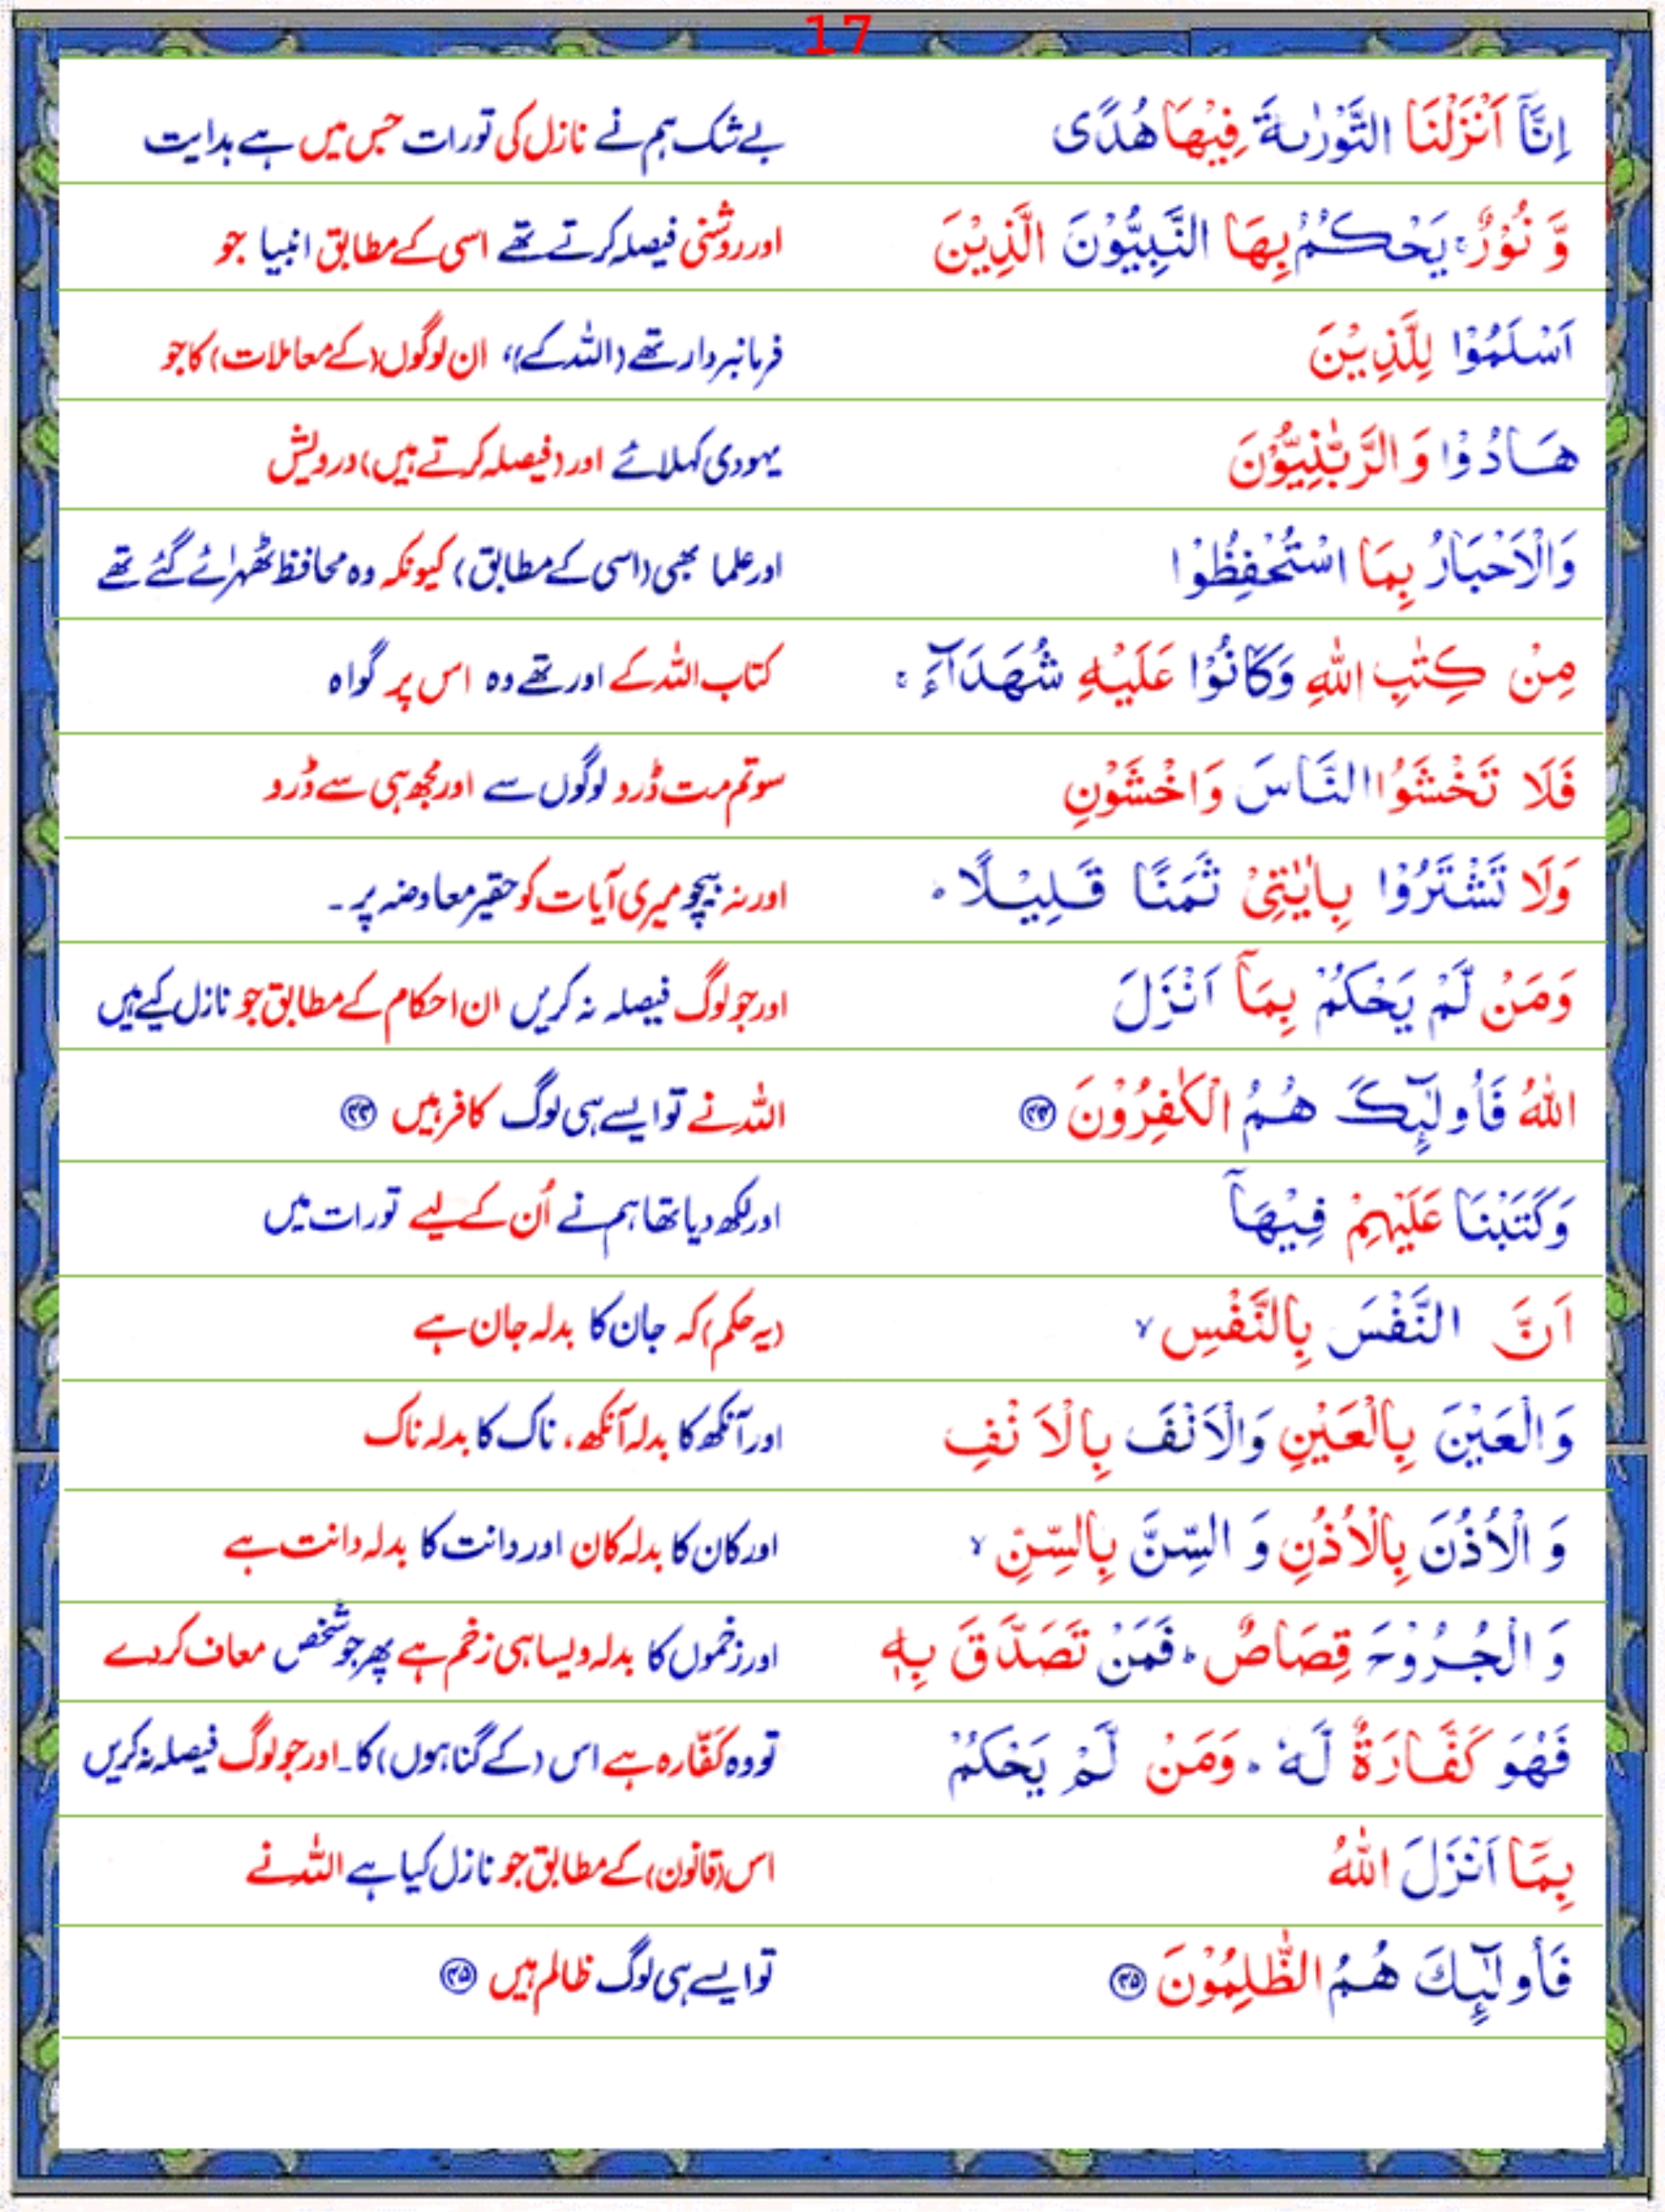 17
اِنَّاۤ اَنْزَلْنَا التَّوْرٰىةَ فِیْهَا هُدًی بے شک ہم نے نازل کی تورات جس میں ہے ہدایت
وَّ نُوْرٌ ۚ یَحْكُمُ بِهَا النَّبِیُّوْنَ الَّذِیْنَ اور روشنی فیصلہ کرتے تھے اسی کے مطابق انبیا جو
اَسْلَمُوْا لِلَّذِیْنَ فرمانبردار تھے (اللہ کے)، ان لوگوں (کے معاملات) کا جو
هَادُوْا وَالرَّبّٰنِیُّوْنَ یہودی کہلائے اور (فیصلہ کرتے ہیں) درویش
وَالْاَحْبَارُ بِمَا اسْتُحْفِظُوْا اور علما بھی (اسی کے مطابق) کیونکہ وہ محافظ ٹھہرائے گئے تھے
مِنْ كِتٰبِ اللّٰهِ وَكَانُوْا عَلَیْهِ شُهَدَآءَ ۚ کتاب اللہ کے اور تھے وہ اس پر گواہ
فَلَا تَخْشَوُا النَّاسَ وَاخْشَوْنِ سو تم مت ڈرو لوگوں سے اور مجھ ہی سے ڈرو
وَلَا تَشْتَرُوْا بِاٰیٰتِیْ ثَمَنًا قَلِیْلًا ؕ اور نہ بیچو میری آیات کو حقیر معاوضہ پر۔
وَمَنْ لَّمْ یَحْكُمْ بِمَاۤ اَنْزَلَ اور جو لوگ فیصلہ نہ کریں ان احکام کے مطابق جو نازل کیے ہیں
اللّٰهُ فَاُولٰٓىِٕكَ هُمُ الْكٰفِرُوْنَ ۴۴ اللہ نے تو ایسے ہی لوگ کافر ہیں ۴۴
وَكَتَبْنَا عَلَیْهِمْ فِیْهَاۤ اور لکھ دیا تھا ہم نے اُن کے لیے تورات میں
اَنَّ النَّفْسَ بِالنَّفْسِ ۙ (یہ حکم) کہ جان کا بدلہ جان ہے
وَالْعَیْنَ بِالْعَیْنِ وَالْاَنْفَ بِالْاَنْفِ اور آنکھ کا بدلہ آنکھ، ناک کا بدلہ ناک
وَ الْاُذُنَ بِالْاُذُنِ وَ السِّنَّ بِالسِّنِّ ۙ اور کان کا بدلہ کان اور دانت کا بدلہ دانت ہے
وَ الْجُرُوْحَ قِصَاصٌ ؕ فَمَنْ تَصَدَّقَ بِهٖ اور زخموں کا بدلہ ویسا ہی زخم ہے پھر جو شخص معاف کر دے
فَهُوَ كَفَّارَةٌ لَّهٗ ؕ وَمَنْ لَّمْ یَحْكُمْ تو وہ کفّارہ ہے اس (کے گناہوں) کا۔ اور جو لوگ فیصلہ نہ کریں
بِمَاۤ اَنْزَلَ اللّٰهُ اس (قانون) کے مطابق جو نازل کیا ہے اللہ نے
فَاُولٰٓىِٕكَ هُمُ الظّٰلِمُوْنَ ۴۵ تو ایسے ہی لوگ ظالم ہیں ۴۵